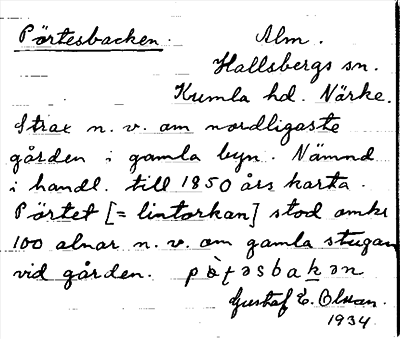 Pörtesbacken. Alm.
Hallsbergs sn.
Kumla hd. Närke.
Strax n. v. om nordligaste
gården i gamla byn. Nämnd
i handl. till 1850 års karta.
Pörtet [= lintorkan] stod omkr
100 alnar n. v. om gamla stugan
vid gården. pò̤ʈəsbakən
Gustaf E. Olsson.
1934